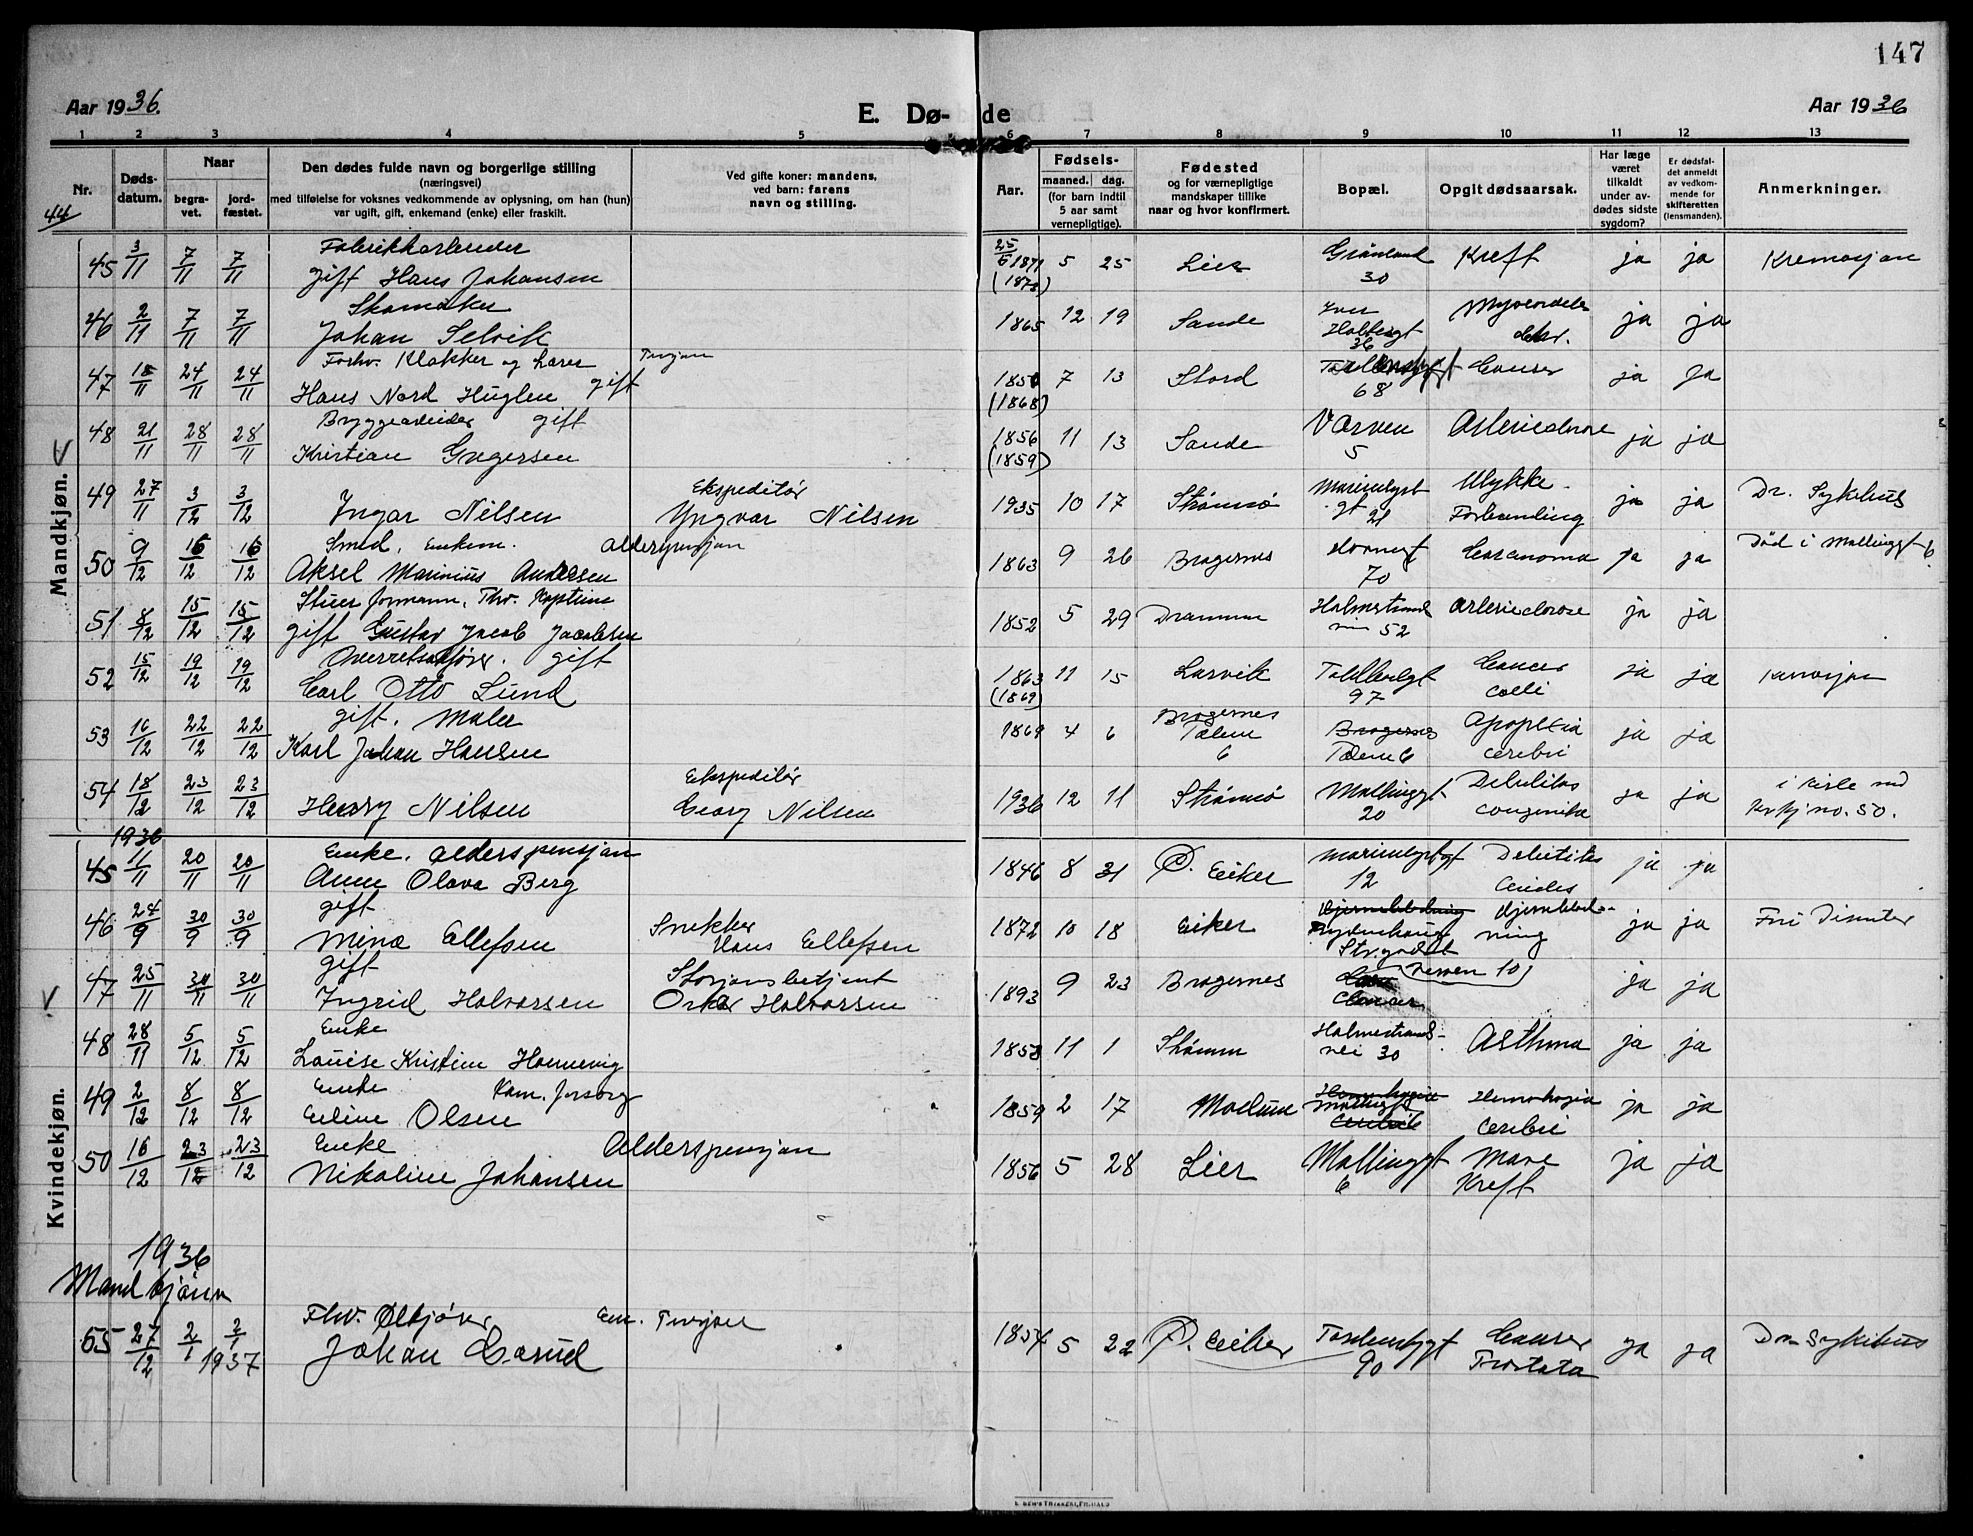 147
Aar 1936.
E. Dø-
de
Aar 1936
1 2 3 4 5 6 7 8 9 10 11 12 13
Nr.
Døds-
datum.
Naar
begra-
vet.
jord-
fæstet.
Den dødes fulde navn og borgerlige stilling
(næringsvei)
med tilføielse for voksnes vedkommende av oplysning, om han (hun)
var ugift, gift, enkemand (enke) eller fraskilt.
Ved gifte koner: mandens,
ved barn: farens
navn og stilling.
Aar.
Fødsels-
maaned. dag.
(for barn indtil
5 aar samt
vernepligtige).
Fødested
og for værnepligtige
mandskaper tillike
naar og hvor konfirmert.
Bopæl.
Opgit dødsaarsak.
Har læge
været
tilkaldt
under av-
dødes sidste
sygdom?
Er dødsfal-
det anmeldt
av vedkom-
mende for
skifteretten
(lensmanden).
Anmerkninger.
44
Mandkjøn.
45 3/11 7/11 7/11 Fabrikkarbeider 25/6 1871 5 25 Lier Grønland Kreft ja ja Kremasjon
gift Hans Johansen (1872) 30
46 2/11 7/11 7/11 Skomaker 1865 12 19 Sande Iver ja ja
Johan Selvik Holtersgt
36
47 18/11 24/11 24/11 Forhv. Klokker og Lærer 1850 7 13 Stord Cancer ja ja
Hans Nord Huglen gift (1868) 68
48 21/11 28/11 28/11 Bryggearbeider gift 1856 11 13 Sande Værven ja ja
Kristian Gregersen (1859) 5
49 27/11 3/12 3/12 Ekspeditør Marienlyst Ulykke
Ingar Nilsen Yngvar Nilsen 1935 10 17 Strømsø gt 21 Forbrenning ja ja Dr. Sykehus
50 9/12 16/12 16/12 Smed, enkem. Alderspensjon 1863 9 26 Bragernes Carcinoma ja ja Død i Mallinggt 6
Aksel Marinius Andersen 70
51 8/12 15/12 15/12 1852 5 29 Drammen Holmestrand ja ja
gift Gustav Jacob Jacobsen 52
52 15/12 19/12 19/12 Overretssakfører. gift 1863 11 15 Larvik Cancer ja ja
Carl Otto Lund (1869) 97 coli
53 16/12 22/12 22/12 gift. Maler 1869 4 6 Bragernes Bragernes Apoplexia ja ja
Karl Johan Hansen 6 6 cerebri
54 18/12 23/12 23/12 Ekspeditør Mallinggt Debilitas i kiste med
Henry Nilsen Georg Nilsen 1936 12 11 Strømsø 20 congenita ja ja Kvkj no. 50.
Kvindekjøn.
1936
45 11/11 20/11 20/11 Enke. Alderspensjon 1846 8 31 Ø. Eiker ja ja
Anne Olava Berg 12
46 24/9 30/9 30/9 gift Snekker Hjerneblødning Hjerneblød-
Mina Ellefsen Hans Ellefsen 1872 10 18 Eiker ning ja ja
47 25/11 30/11 30/11 gift Stasjonsbetjent
Ingrid Halvorsen Oskar Halvorsen 1893 9 23 Bragernes 10 ja ja
48 28/11 5/12 5/12 Enke Holmestrands-
Louise Kristine 1853 11 1 vei 30 Asthma ja ja
49 2/12 8/12 8/12 Enke Kom. forsorg
Olsen 1859 2 17 Modum cerebri ja ja
50 16/12 23/12 23/12 Enke Alderspensjon
Nikoline Johansen 1856 5 28 Lier Mallinggt Mave ja ja
6 Kreft
1936
Mandkjønn
55 27/12 2/1 2/1 1937 Fhv. em.
Johan 1854 5 22 Ø. Eiker Cancer ja ja Dr. Sykehus
90 Prostata